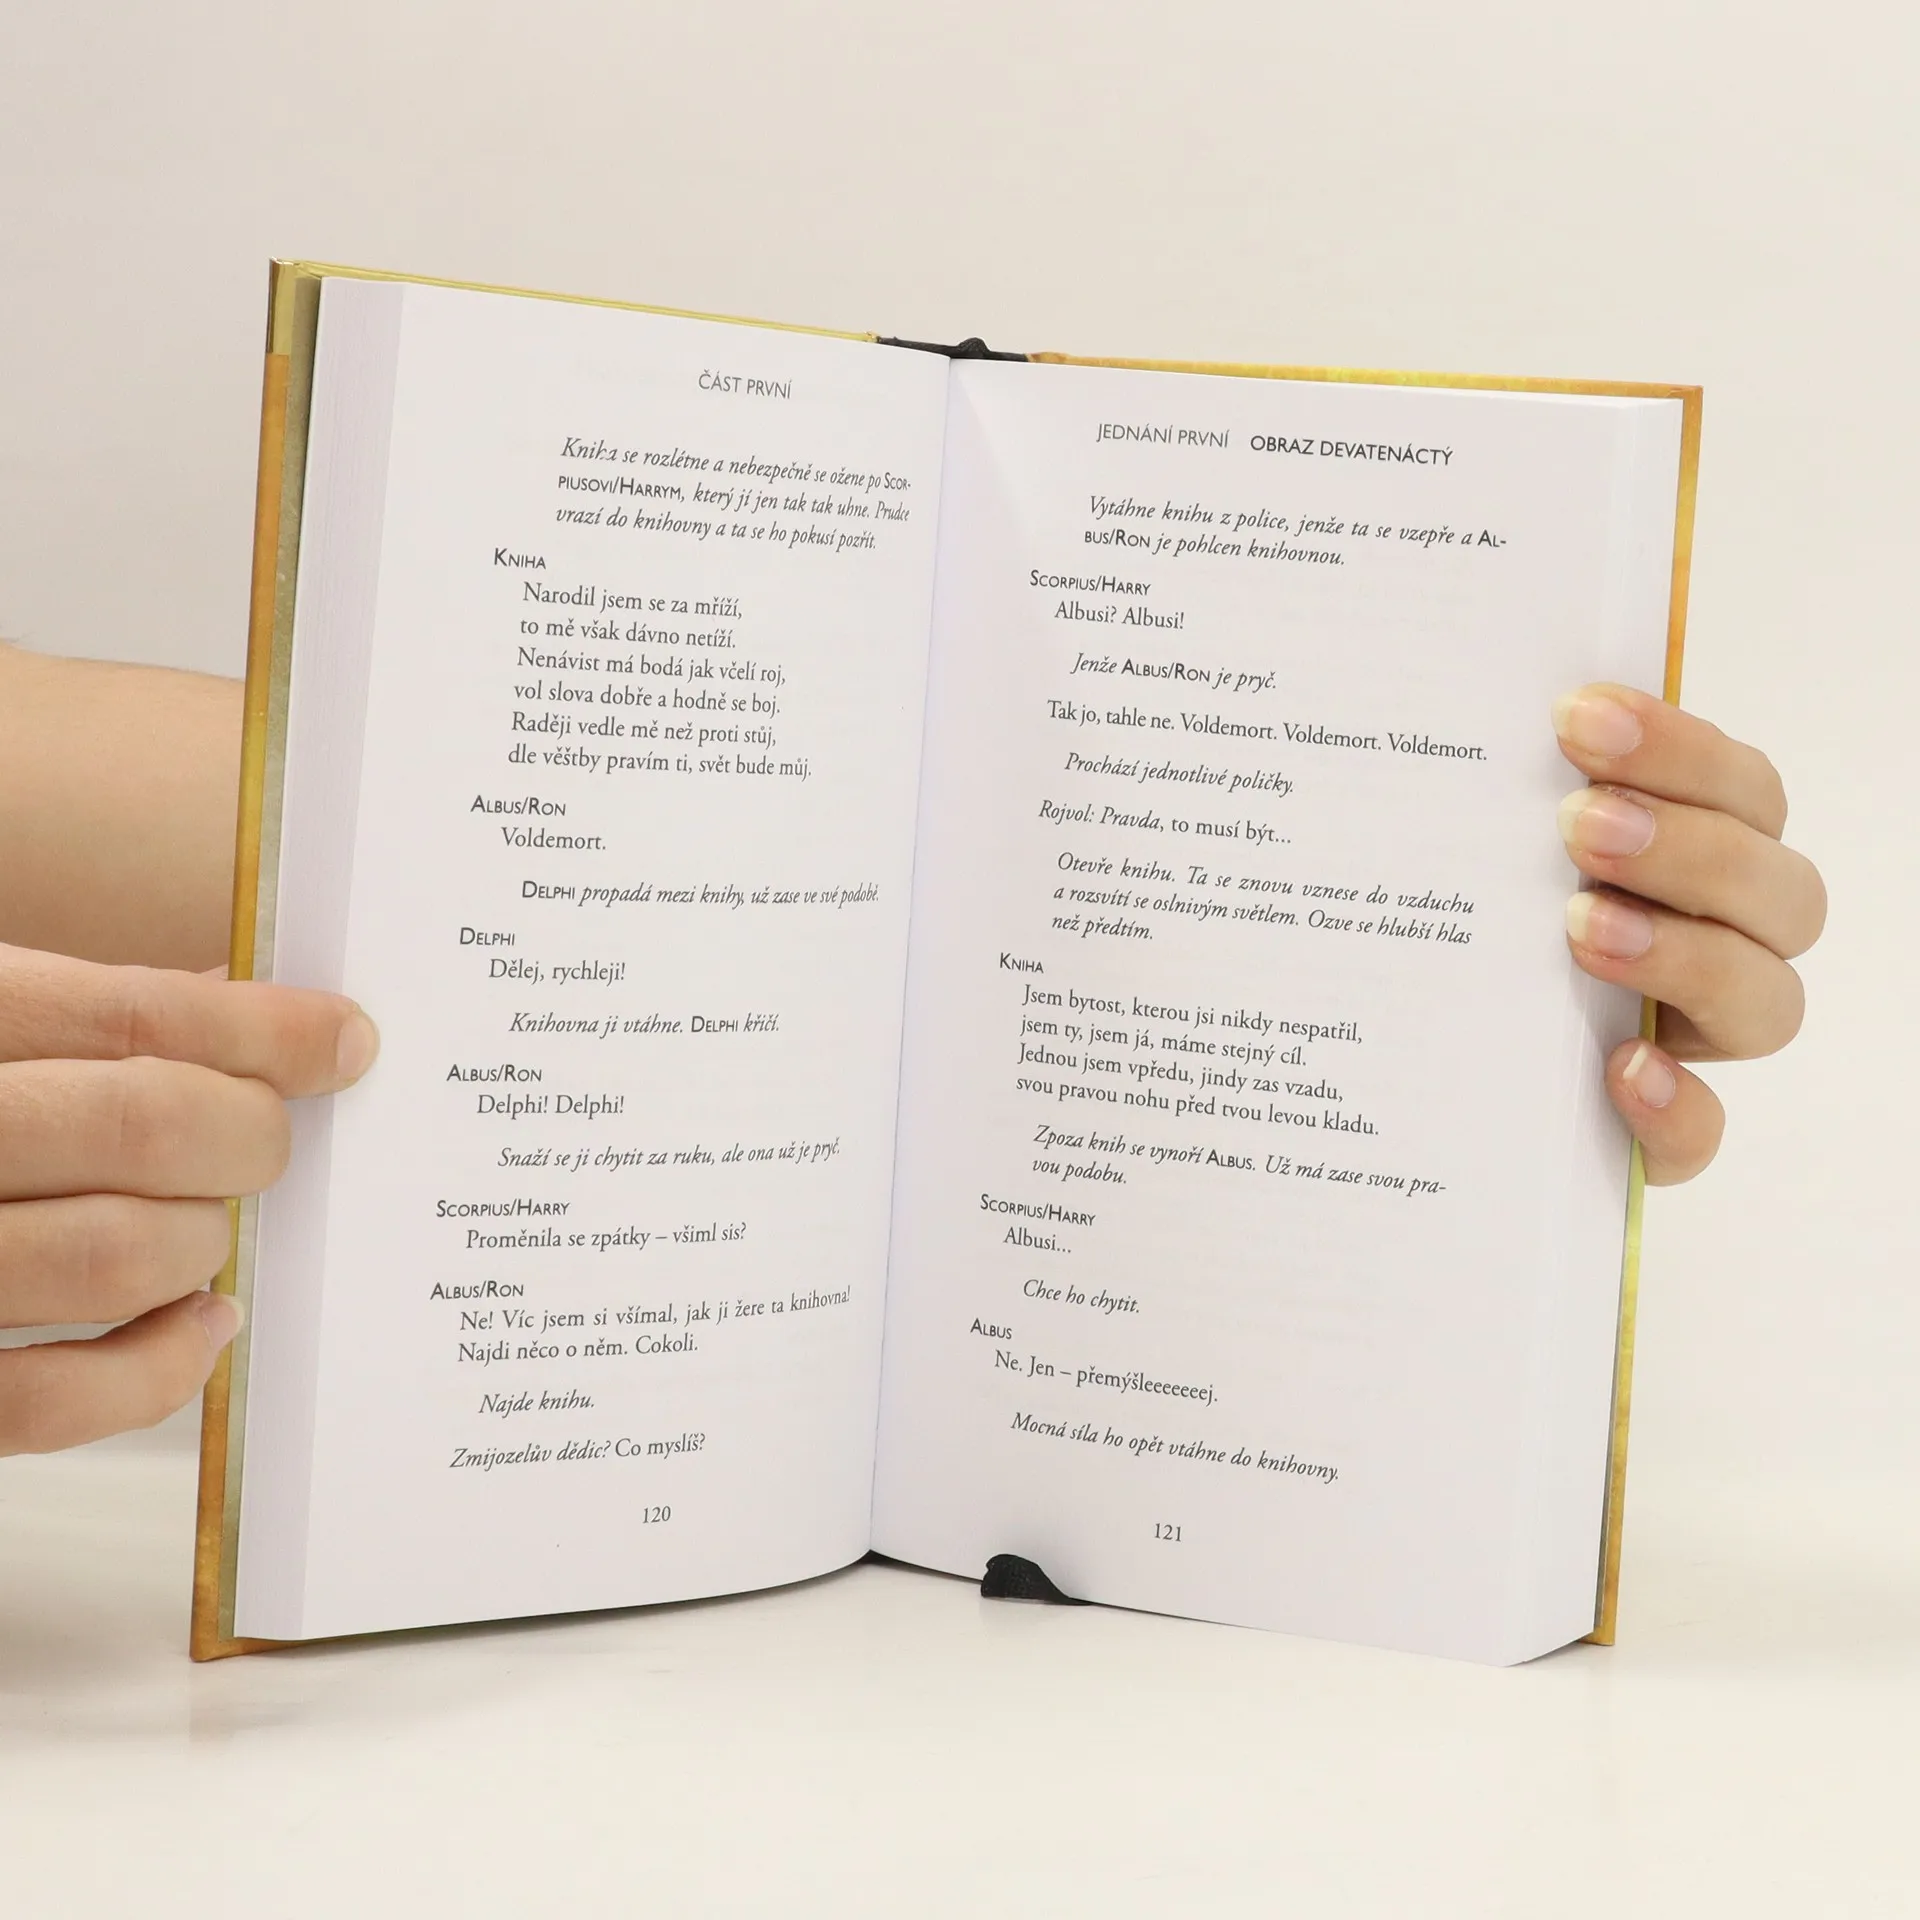 ČÁST PRVNÍ
Kniha se rozlétne a nebezpečně se ožene po SCOR-
PIUSOVI/HARRYM, který jí jen tak tak uhne. Prudce
vrazí do knihovny a ta se ho pokusí pozřít.
KNIHA
Narodil jsem se za mříží,
to mě však dávno netíží.
Nenávist má bodá jak včelí roj,
vol slova dobře a hodně se boj.
Raději vedle mě než proti stůj,
dle věštby pravím ti, svět bude můj.
ALBUS/RON
Voldemort.
DELPHI propadá mezi knihy, už zase ve své podobě.
DELPHI
Dělej, rychleji!
Knihovna ji vtáhne. DELPHI křičí.
ALBUS/RON
Delphi! Delphi!
Snaží se ji chytit za ruku, ale ona už je pryč.
SCORPIUS/HARRY
Proměnila se zpátky – všiml sis?
ALBUS/RON
Ne! Víc jsem si všímal, jak ji žere ta knihovna!
Najdi něco o něm. Cokoli.
Najde knihu.
Zmijozelův dědic? Co myslíš?
120
JEDNÁNÍ PRVNÍ OBRAZ DEVATENÁCTÝ
Vytáhne knihu z police, jenže ta se vzepře a AL-
BUS/RON je pohlcen knihovnou.
SCORPIUS/HARRY
Albusi? Albusi!
Jenže ALBUS/RON je pryč.
Tak jo, tahle ne. Voldemort. Voldemort. Voldemort.
Prochází jednotlivé poličky.
Rojvol: Pravda, to musí být...
Otevře knihu. Ta se znovu vznese do vzduchu
a rozsvítí se oslnivým světlem. Ozve se hlubší hlas
než předtím.
KNIHA
Jsem bytost, kterou jsi nikdy nespatřil,
jsem ty, jsem já, máme stejný cíl.
Jednou jsem vpředu, jindy zas vzadu,
svou pravou nohu před tvou levou kladu.
Zpoza knih se vynoří ALBUS. Už má zase svou pra-
vou podobu.
SCORPIUS/HARRY
Albusi...
Chce ho chytit.
ALBUS
Ne. Jen – přemýšleeeeeeej.
Mocná síla ho opět vtáhne do knihovny.
121